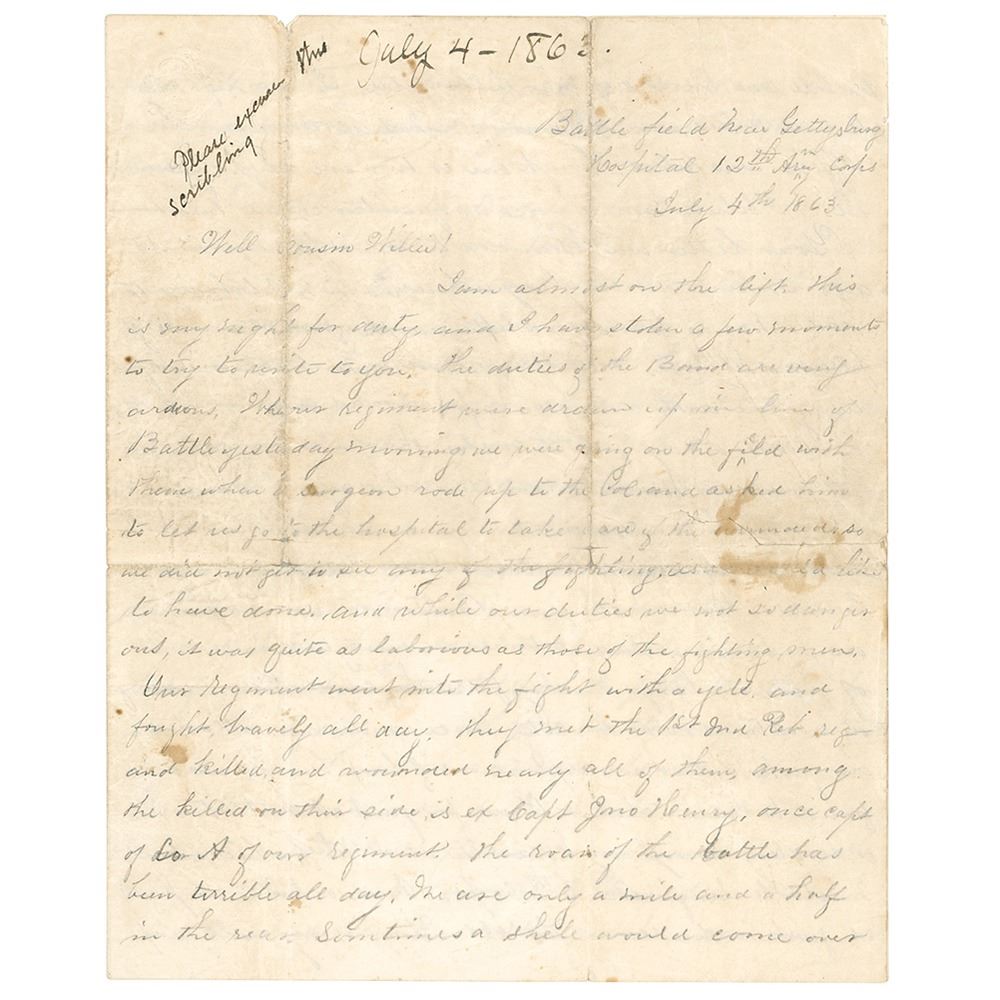 July 4 - 1863.
Please excuse this
scribling
Battle field Near Gettysburg
Hospital 12th Army Corps
July 4th 1863
Well Cousin Willie!
I am almost on the
this
is my night for duty, and I have stolen a few moments
to try to write to you. The duties of the Band are very
ardous. When our regiment were drawn up in line of
Battle yesterday morning we were going on the field with
them when a surgeon rode up to the Col. and asked him
to let us go to the hospital to take care of the wounded, so
we did not get to see any of the fighting, as
like
to have done. and while our duties we not so danger
ous, it was quite as laborious as those of the fighting men.
Our Regiment went into the fight with a yell, and
fought bravely all day. They met the 1st Md Reb reg-
and killed and wounded nearly all of them, among
the killed on their side is ex Capt Jno Henry, once capt
of Co A of our regiment. The roar of the battle has
been terrible all day. We are only a mile and a half
in the rear. Sometimes a shell would come over